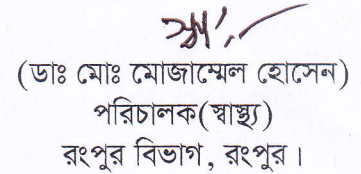 (ডাঃ মোঃ মোজাম্মেল হোসেন)
পরিচালক(স্বাস্থ্য)
রংপুর বিভাগ, রংপুর।